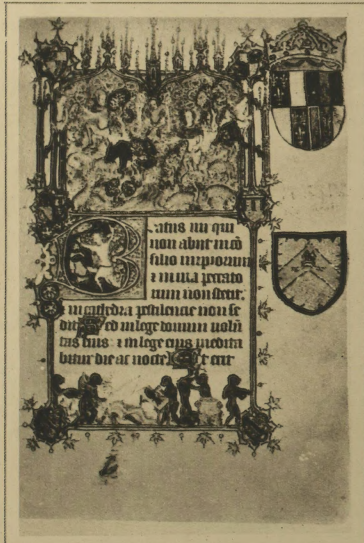 atus uir qui
non abiit in co
silio impiorum
i in uia peccato
rum non stetit.
i in cathedra pestilencie non se
dit ed in lege domini uolu
tas eius i in lege eius medita
bitur die ac nocte t erit